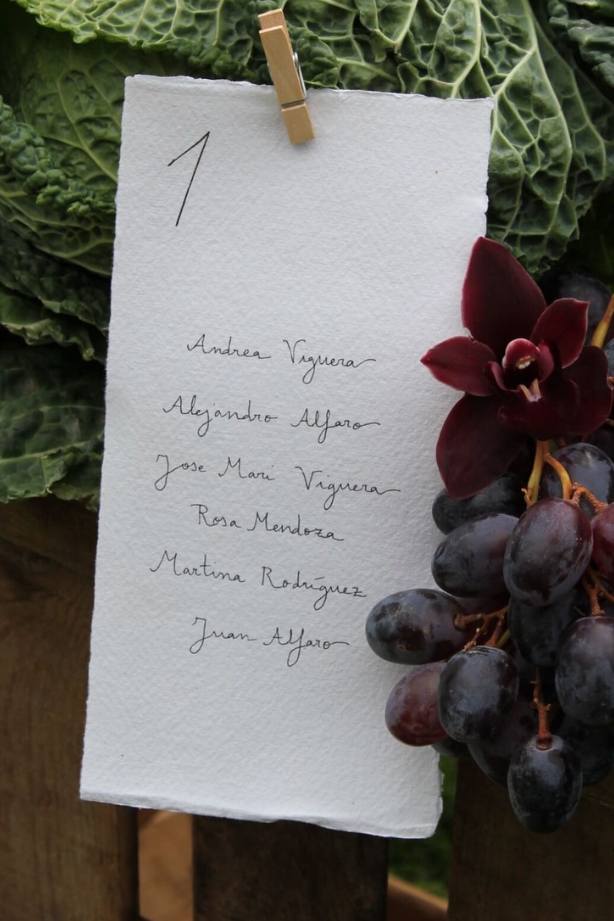 1
Andrea Viguera
Alejandro Alfaro
Jose Mari Viguera
Rosa Mendoza
Martina Rodríguez
Juan Alfaro